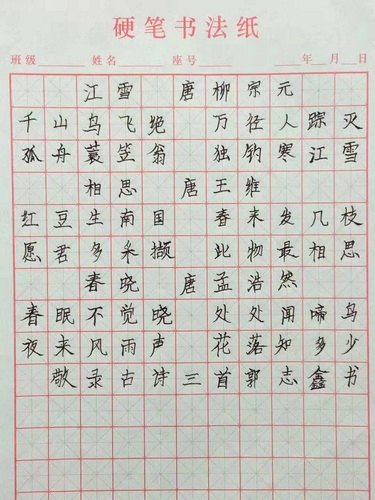 硬笔书法纸
班级 姓名 座号 年 月 日
江雪 唐 柳宗元
千山鸟飞绝 万径人踪灭
孤舟蓑笠翁 独钓寒江雪
相思 唐 王维
红豆生南国 春来发几枝
愿君多采撷 此物最相思
春晓 唐 孟浩然
春眠不觉晓 处处闻啼鸟
夜来风雨声 花落知多少
敬录古诗三首郭志鑫书